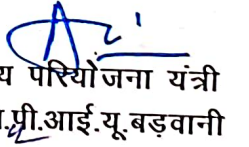 य परियोजना यंत्री
.पी.आई.यू.बड़वानी